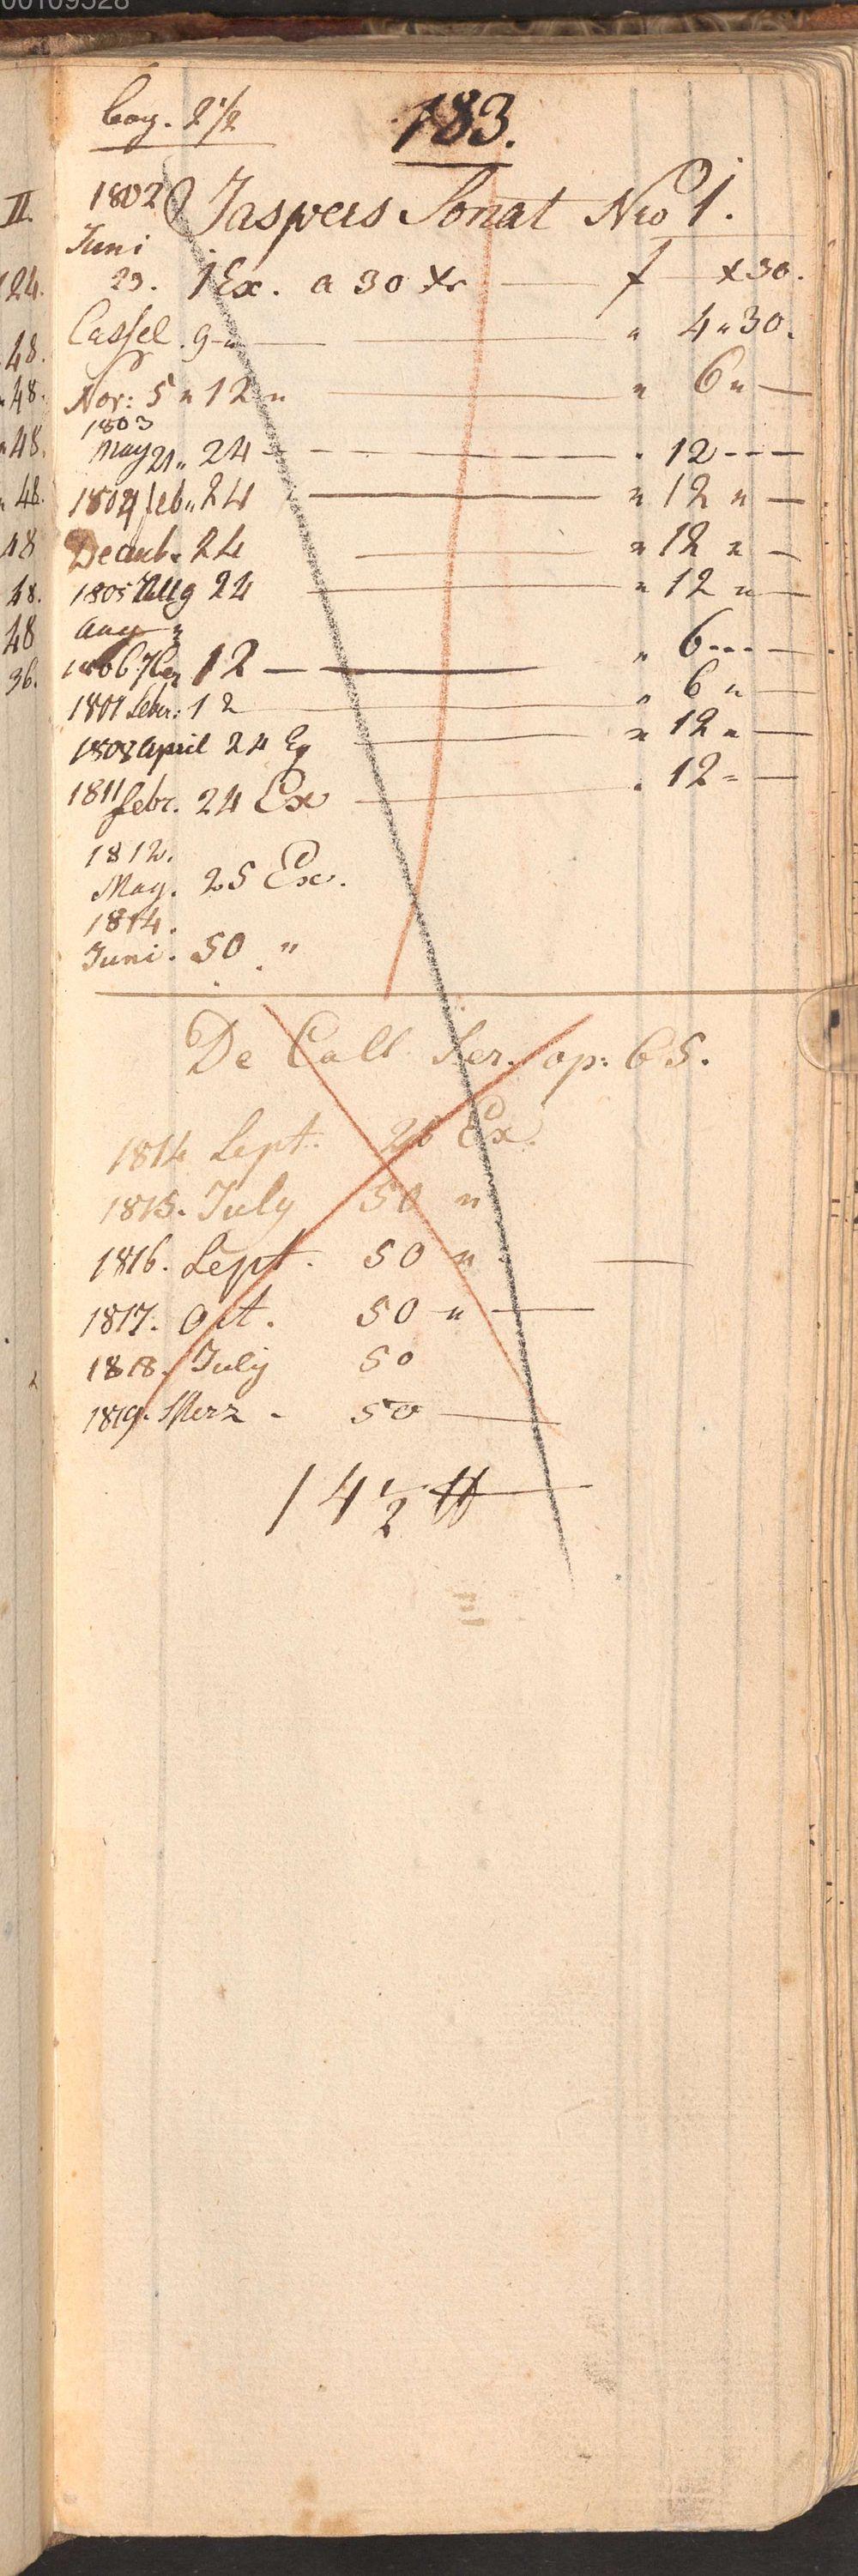 00109528
bog. 2 1/2
183.
1802 Jaspers Sonat Nro 1.
Juni
23. 1 Ex. a 30 Xr — f — x 30.
Cassel. 9 " — " 4 " 30.
Nov: 5 " 12 " — " 6 " —
1803
May 21 " 24 — " 12 - - -
1804 feb " 24 — " 12 " —
Decemb. 24 — " 12 " —
1805 Aug 24 — " 12 " —
Aug "
1806 12 — " 6 - - -
1807 febr: 12 — " 6 " —
1808 april 24 Ex — " 12 " —
1811 febr. 24 Ex — " 12 " —
1812.
May. 25 Ex.
1814.
Juni. 50 "
De Call Ser. op: 65.
1814 Sept. 26 Ex.
1815. July 50 "
1816. Sept. 50 " —
1817. Oct. 50 " —
1818. July 50
1819. Merz - 50 —
14 1/2 ℔
II.
124.
48.
" 48.
" 48.
" 48.
48
48.
48
36.